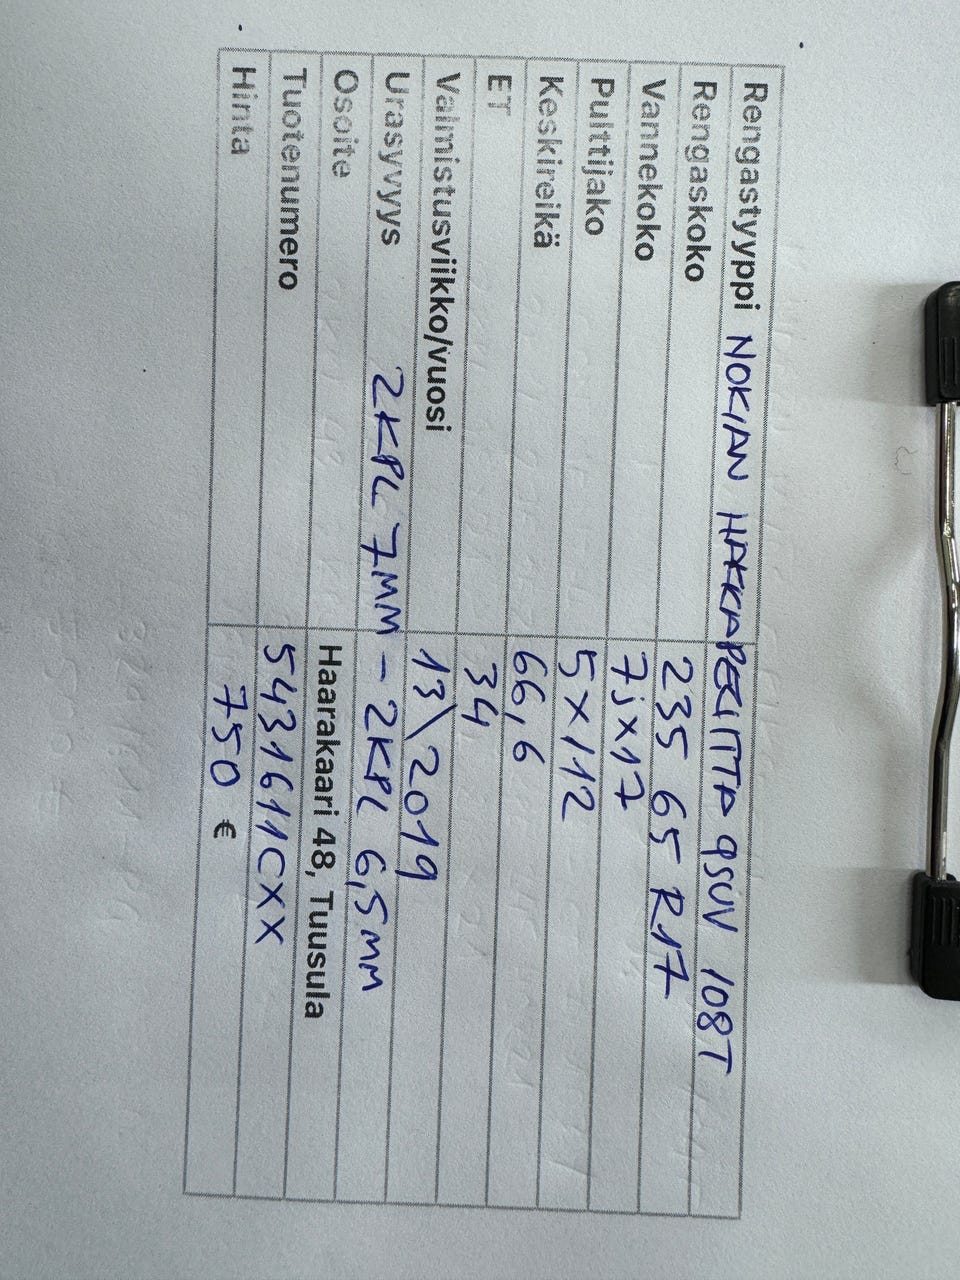 Rengastyyppi NOKIAN HAKKAPELIITTA 9SUV 108T
Rengaskoko 235 65 R17
Vannekoko 7jx17
Pulttijako 5x112
Keskireikä 66,6
ET 34
Valmistusviikko/vuosi 13\2019
Urasyvyys 2KPL 7MM - 2KPL 6,5MM
Osoite Haarakaari 48, Tuusula
Tuotenumero 5431611CXX
Hinta 750 €